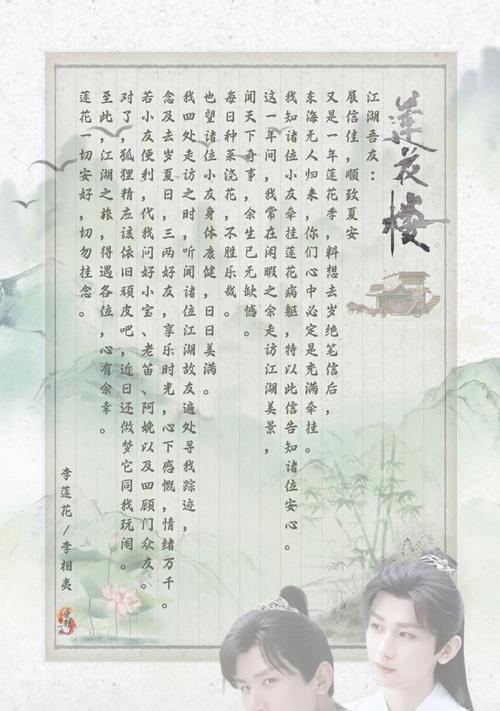 莲花楼
江湖吾友：
展信佳，顺致夏安
又是一年莲花季，料想去岁绝笔信后，
东海无人归来，你们心中必定是充满牵挂。
我知诸位小友牵挂莲花病躯，特以此信告知诸位安心。
这一年间，我常在闲暇之余走访江湖美景，
闻天下奇事，余生已无缺憾。
每日种菜浇花，不胜乐哉。
也望诸位小友身体康健，日日美满。
我四处走访之时，听闻诸位江湖故友遍处寻我踪迹，
念及去岁夏日，三两好友，享乐时光，心下感慨，情绪万千。
若小友便利，代我问好小宝、老笛、阿娩以及四顾门众友。
对了，狐狸精应该依旧顽皮吧，近日还做梦它同我玩闹。
至此，江湖之旅，得遇各位，心有余幸。
莲花一切安好，切勿挂念。
李莲花/李相夷